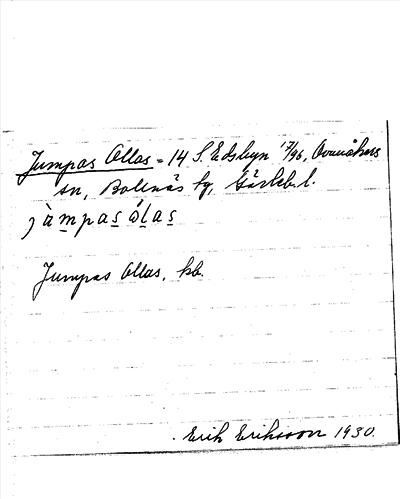 Jumpas Ollas = 14 S. Edsbyn 17/96, Ovanåkers
sn, Bollnäs tg, Gävleb. l.
jàmpas ólas
Jumpas Ollas, hb.
Erik Eriksson 1930.